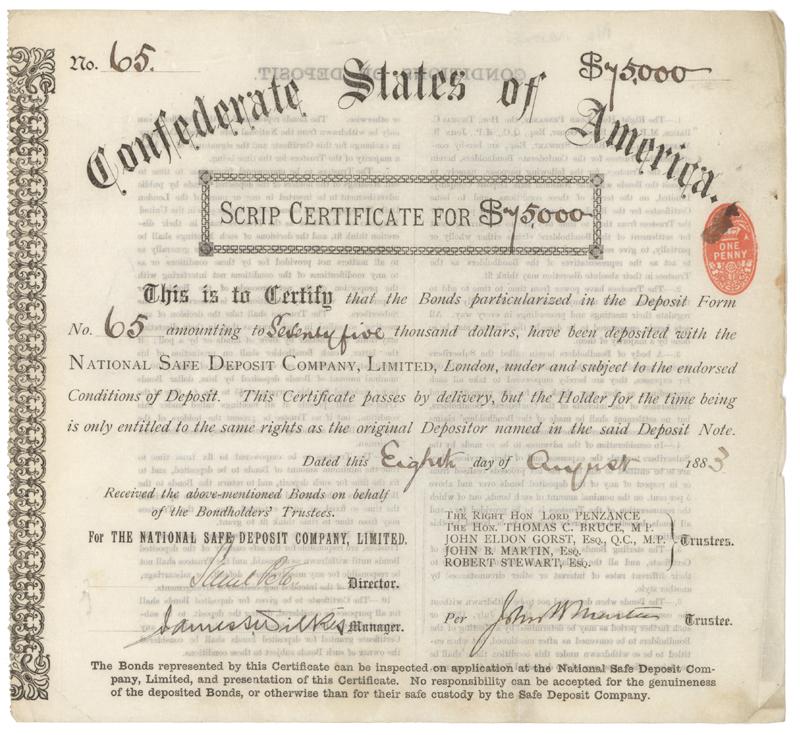 No. 65.
$75,000
Confederate States of America.
SCRIP CERTIFICATE FOR $75,000
ONE PENNY
This is to Certify that the Bonds particularized in the Deposit Form
No. 65 amounting to Seventyfive thousand dollars, have been deposited with the
NATIONAL SAFE DEPOSIT COMPANY, LIMITED, London, under and subject to the endorsed
Conditions of Deposit. This Certificate passes by delivery, but the Holder for the time being
is only entitled to the same rights as the original Depositor named in the said Deposit Note.
Dated this Eighth day of August 1883
Received the above-mentioned Bonds on behalf
of the Bondholders' Trustees.
For THE NATIONAL SAFE DEPOSIT COMPANY, LIMITED.
Director.
Manager.
THE RIGHT HON LORD PENZANCE
THE HON. THOMAS C. BRUCE, M P.
JOHN ELDON GORST, ESQ., Q.C., M.P.
JOHN B. MARTIN, ESQ.
ROBERT STEWART, ESQ.
Trustees.
Per John B Martin Trustee.
The Bonds represented by this Certificate can be inspected on application at the National Safe Deposit Com-
pany, Limited, and presentation of this Certificate. No responsibility can be accepted for the genuineness
of the deposited Bonds, or otherwise than for their safe custody by the Safe Deposit Company.